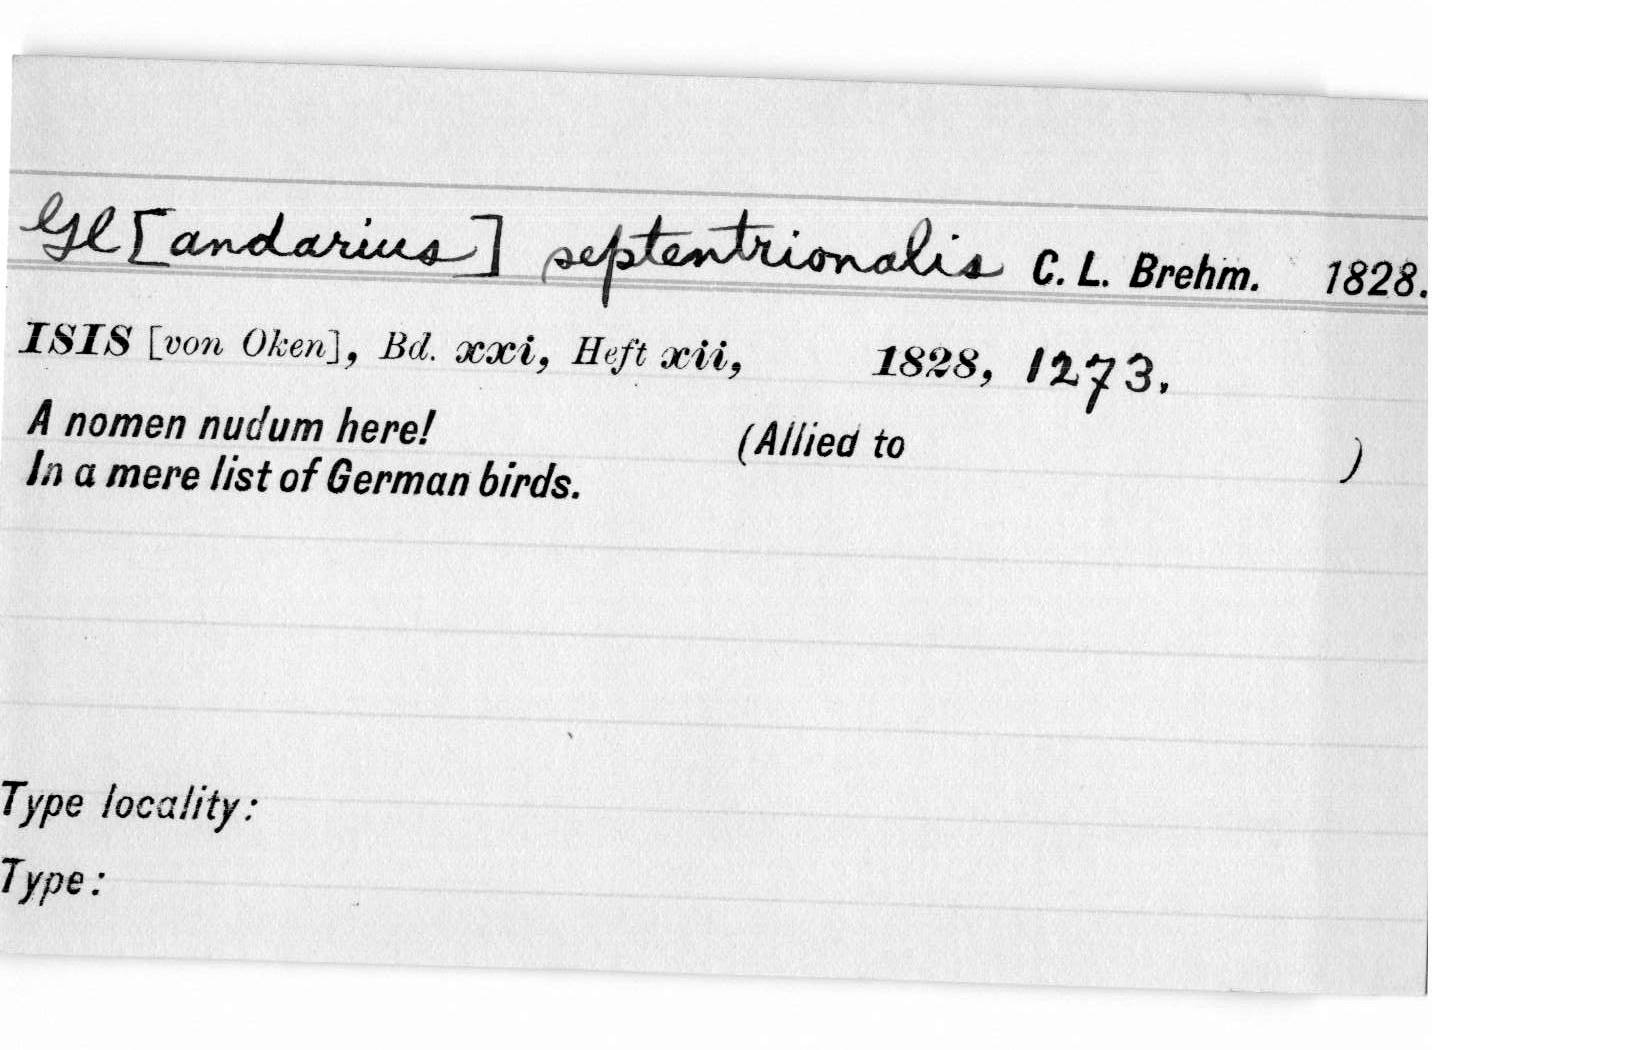 Gl[andarius] septentrionalis C. L. Brehm. 1828.
ISIS [von Oken], Bd. xxi, Heft xii, 1828, 1273.
A nomen nudum here! (Allied to )
In a mere list of German birds.
Type locality:
Type: